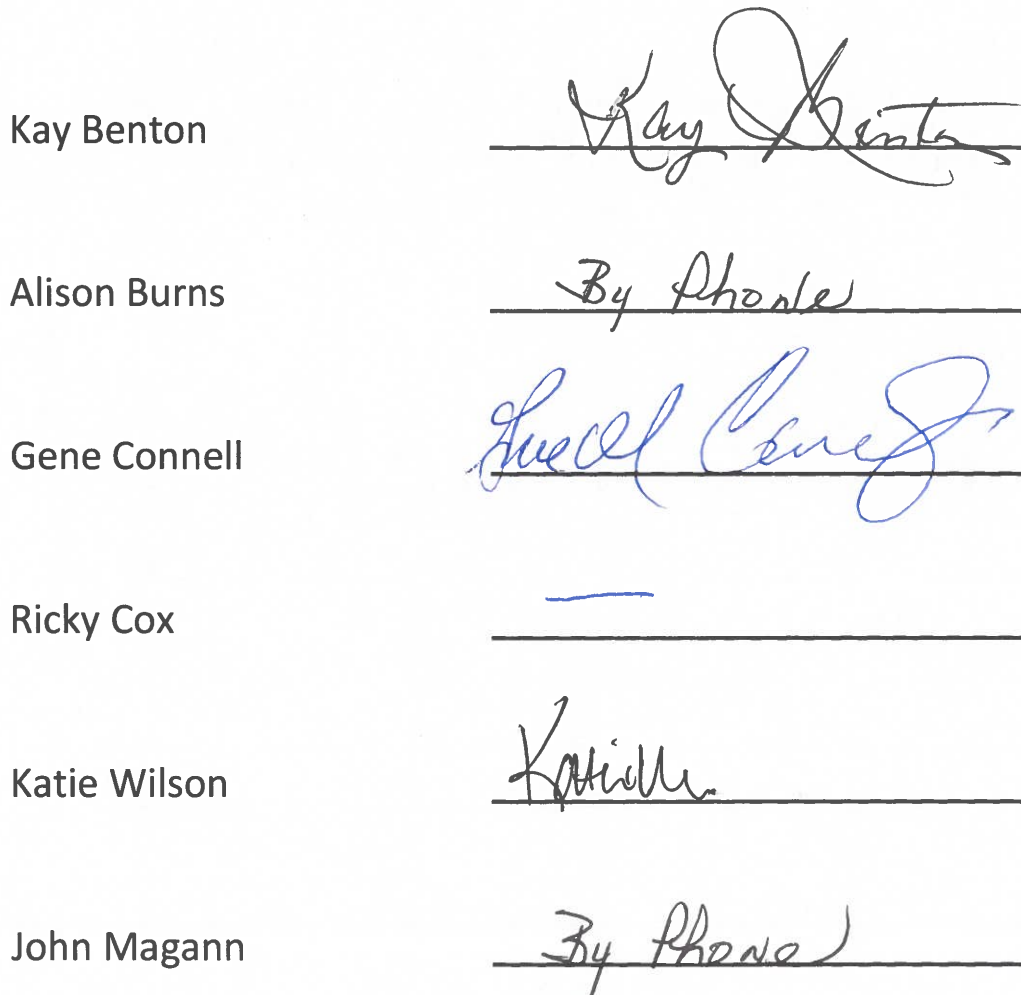 Kay Benton Kay Benton
Alison Burns By Phone
Gene Connell
Ricky Cox —
Katie Wilson
John Magann By Phone